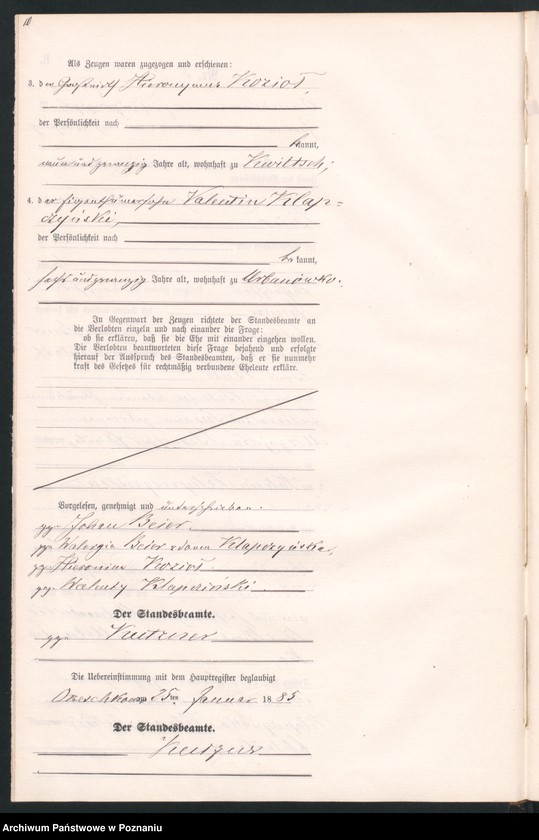 10
Als Zeugen waren zugezogen und erschienen:
3. der Gastwirth Hieronymus Kozioł,
der Persönlichkeit nach
bekannt,
neunundzwanzig Jahre alt, wohnhaft zu Kwiltsch,
4. der Eigenthümersohn Valentin Klap=
czyński,
der Persönlichkeit nach
bekannt,
sechsundzwanzig Jahre alt, wohnhaft zu Urbanówko.
In Gegenwart der Zeugen richtete der Standesbeamte an
die Verlobten einzeln und nach einander die Frage:
ob sie erklären, daß sie die Ehe mit einander eingehen wollen.
Die Verlobten beantworteten diese Frage bejahend und erfolgte
hierauf der Ausspruch des Standesbeamten, daß er sie nunmehr
kraft des Gesetzes für rechtmäßig verbundene Eheleute erkläre.
Vorgelesen, genehmigt und unterschrieben.
gez. Johan Beier.
gez. Waleryja Beier zdomu Klapczyńska.
gez. Hieronim Kozioł.
gez. Walenty Klapcziński.
Der Standesbeamte.
gez. Kutzner
Die Uebereinstimmung mit dem Hauptregister beglaubigt
am 25ten Januar 1885
Der Standesbeamte.
Kutzner
Archiwum Państwowe w Poznaniu